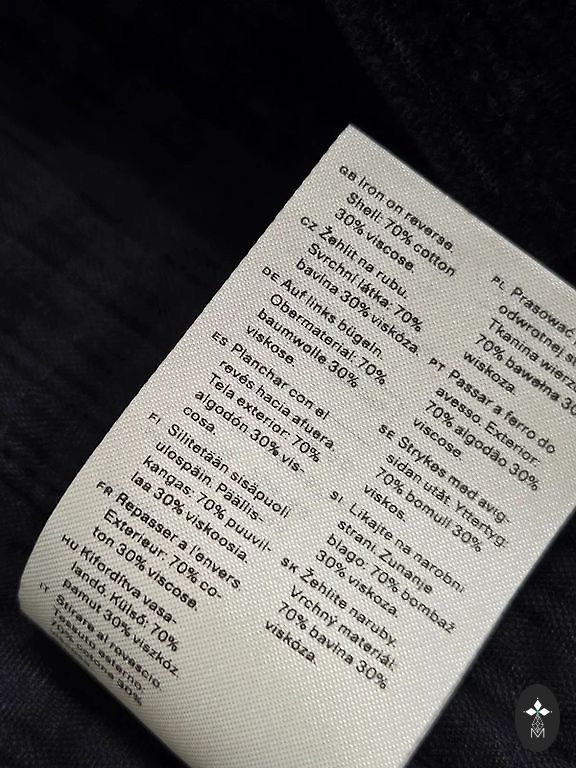 GB Iron on reverse.
Shell: 70% cotton
30% viscose.
CZ Žehlit na rubu.
Svrchní látka: 70%
bavlna 30% viskóza.
DE Auf links bügeln.
Obermaterial: 70%
baumwolle 30%
viskose.
ES Planchar con el
revés hacia afuera.
Tela exterior: 70%
algodón 30% vis-
cosa.
FI Silitetään sisäpuoli
ulospäin. Päällis-
kangas: 70% puuvil-
laa 30% viskoosia.
FR Repasser a l'envers.
Exterieur: 70% co-
ton 30% viscose.
HU Kifordítva vasa-
landó. Külső: 70%
pamut 30% viszkóz.
IT Stirare al rovescio.
Tessuto esterno:
70% cotone 30%
PL Prasować
odwrotnej
Tkanina
70% bawełna 30
wiskoza.
PT Passar a ferro do
avesso. Exterior:
70% algodão 30%
viscose.
SE Strykes med avig-
sidan utåt. Yttertyg:
70% bomull 30%
viskos.
SI Likajte na narobni
strani. Zunanje
blago: 70% bombaž
30% viskoza.
SK Žehlite naruby.
Vrchný materiál:
70% bavlna 30%
viskóza.
M